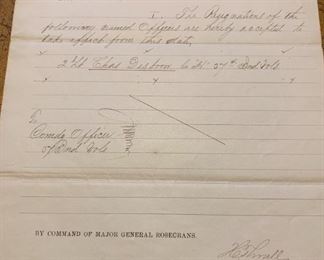 I. The Resignations of the
following named Officers are hereby accepted to
take effect from this date,
" " " "
2d Lt Chas Disbrow Co "H" 57th Ind Vols
" " "
To
Comdg Officer
57 Ind Vols
BY COMMAND OF MAJOR GENERAL ROSECRANS.